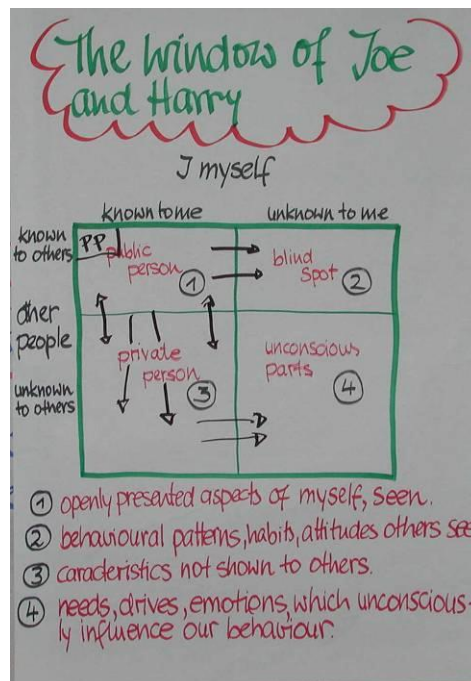 The Window of Joe
and Harry
I myself
known to me
unknown to me
known
to others
PP
public
person
①
blind
spot
②
other
people
private
person
③
unconscious
parts
④
unknown
to others
① openly presented aspects of myself, seen.
② behavioural patterns, habits, attitudes others see
③ caracteristics not shown to others.
④ needs, drives, emotions, which unconscious-
ly influence our behaviour.